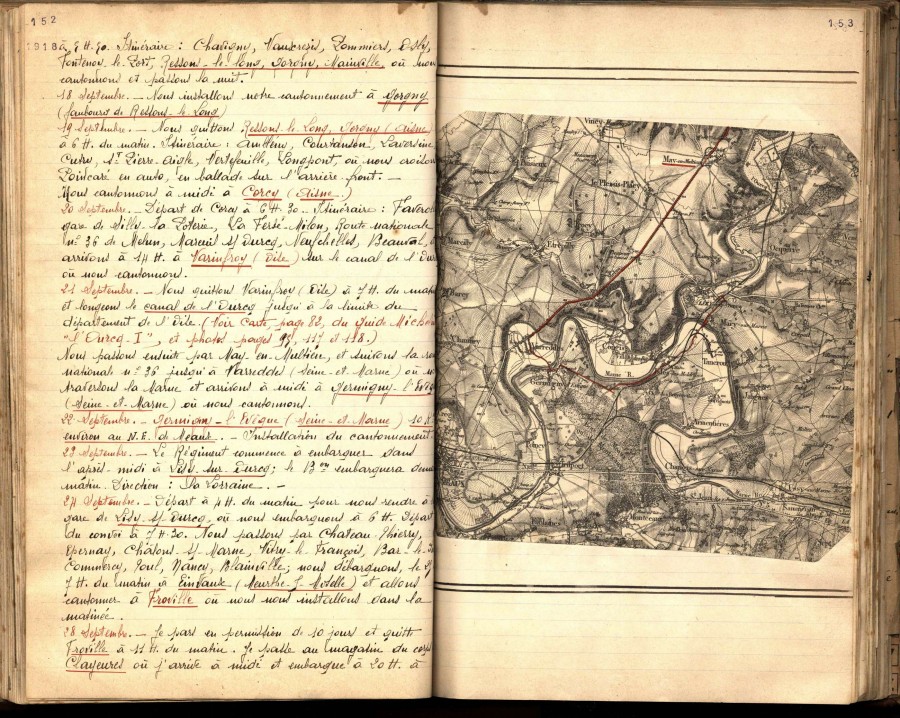 152
1918 à 8 H. 50. Itinéraire : Chavigny, Vauxresis, Pommiers, Osly,
Fontenoy-le-Port, Ressons-le-Long, Gorgny, Mainville, où nous
cantonnons et passons la nuit.
18 Septembre. — Nous installons notre cantonnement à Gorgny
(faubourg de Ressons-le-Long)
19 Septembre. — Nous quittons Ressons-le-Long, Gorgny (Aisne)
à 6 H. du matin. Itinéraire : Amblény, Courtançon, Laversine
Cutry, St Pierre-Aigle, Vertefeuille, Longpont, où nous croisons
Poincaré en auto, en ballade sur l'arrière-front. —
Nous cantonnons à midi à Corcy (Aisne.)
20 Septembre. — Départ de Corcy à 6 H. 30. Itinéraire : Faverol
gare de Silly-la-Poterie, La Ferté-Milon, Route nationale
n° 36 de Melun, Mareuil s/ Ourcq, Neufchelles, Beauval,
arrivons à 14 H. à Varinfroy (Oise) sur le canal de l'Our
où nous cantonnons.
21 Septembre. — Nous quittons Varinfroy (Oise) à 7 H. du mat
et longeons le canal de l'Ourcq jusqu'à la limite du
département de l'Oise. (Voir Carte, page 82, du Guide Michelin
"l'Ourcq. I", et photos pages 95, 117 et 118.)
Nous passons ensuite par May-en-Multien, et suivons la
nationale n° 36 jusqu'à Varreddes (Seine-et-Marne) où nous
traversons la Marne et arrivons à midi à Germigny-l'Evêq
(Seine-et-Marne) où nous cantonnons.
22 Septembre. — Germigny-l'Evêque (Seine-et-Marne) 10 K
environ au N.E. de Meaux. — Installation du cantonnement.
23 Septembre. — Le Régiment commence à embarquer dans
l'après-midi à Lizy-sur-Ourcq ; le 3e Bon embarquera demain
matin. Direction : La Lorraine. —
24 Septembre. — Départ à 4 H. du matin pour nous rendre à
gare de Lizy s/ Ourcq, où nous embarquons à 6 H. Départ
du convoi à 7 H. 30. Nous passons par Chateau-Thierry,
Epernay, Châlons-s/-Marne, Vitry-le-François, Bar-le-D
Commercy, Toul, Nancy, Blainville ; nous débarquons, le 25
7 H. du matin à Einvaux (Meurthe-&-Moselle) et allons
cantonner à Froville où nous nous installons dans la
matinée.
28 Septembre. — Je pars en permission de 10 jours et quitte
Froville à 11 H. du matin. Je passe au magasin du corps
Clayeures où j'arrive à midi et embarque à 20 H. à
153
Vincy
May-en-Multien
le Plessis-Placy
Etrépilly
Ocquerre
Lizy
Varreddes
Congis
Tancrou
Marne R.
Germigny
Jaignes
Armentières
Poincy
Trilport
Changis
Montceaux